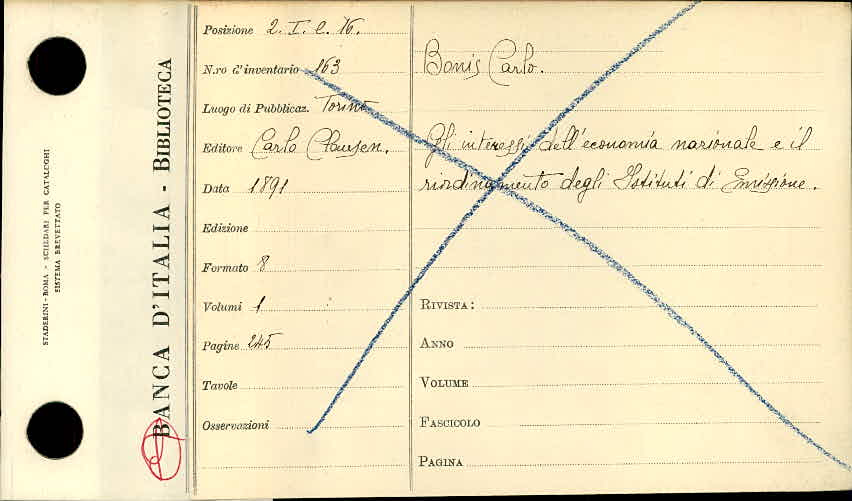 STADERINI-ROMA - SCHEDARI PER CATALOGHI
SISTEMA BREVETTATO
BANCA D'ITALIA - BIBLIOTECA
Posizione 2. I. C. 76.
N.ro d'inventario 163
Luogo di Pubblicaz. Torino
Editore Carlo Clausen.
Data 1891
Edizione
Formato 8
Volumi 1
Pagine 245
Tavole
Osservazioni
Bonis Carlo.
Gli interessi dell'economia nazionale e il
riordinamento degli Istituti di Emissione.
RIVISTA:
ANNO
VOLUME
FASCICOLO
PAGINA